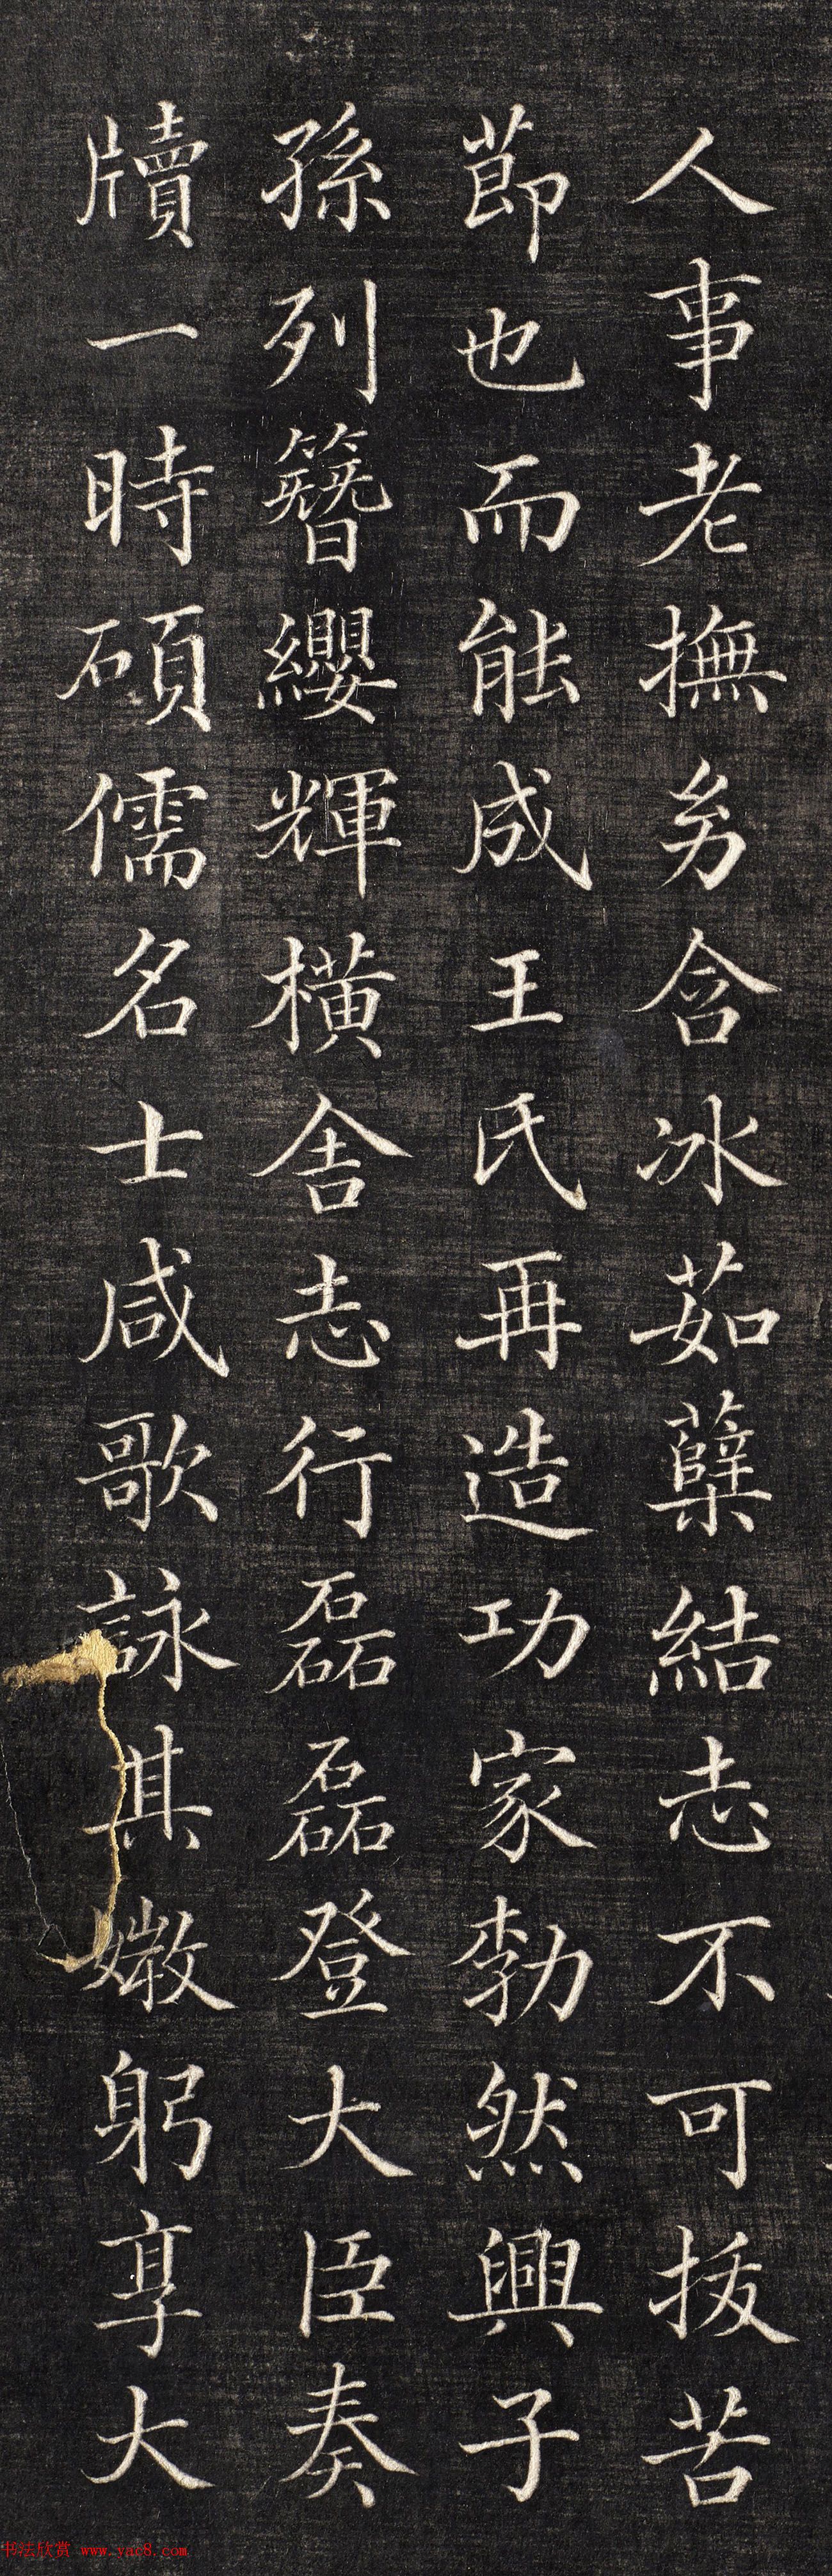 人事老撫㓜含冰茹蘖結志不可拔苦
節也而能成王氏再造功家勃然興子
孫列簪纓輝橫舍志行磊磊登大臣奏
牘一時碩儒名士咸歌詠其媺躬享大
书法欣赏 www.yac8.com